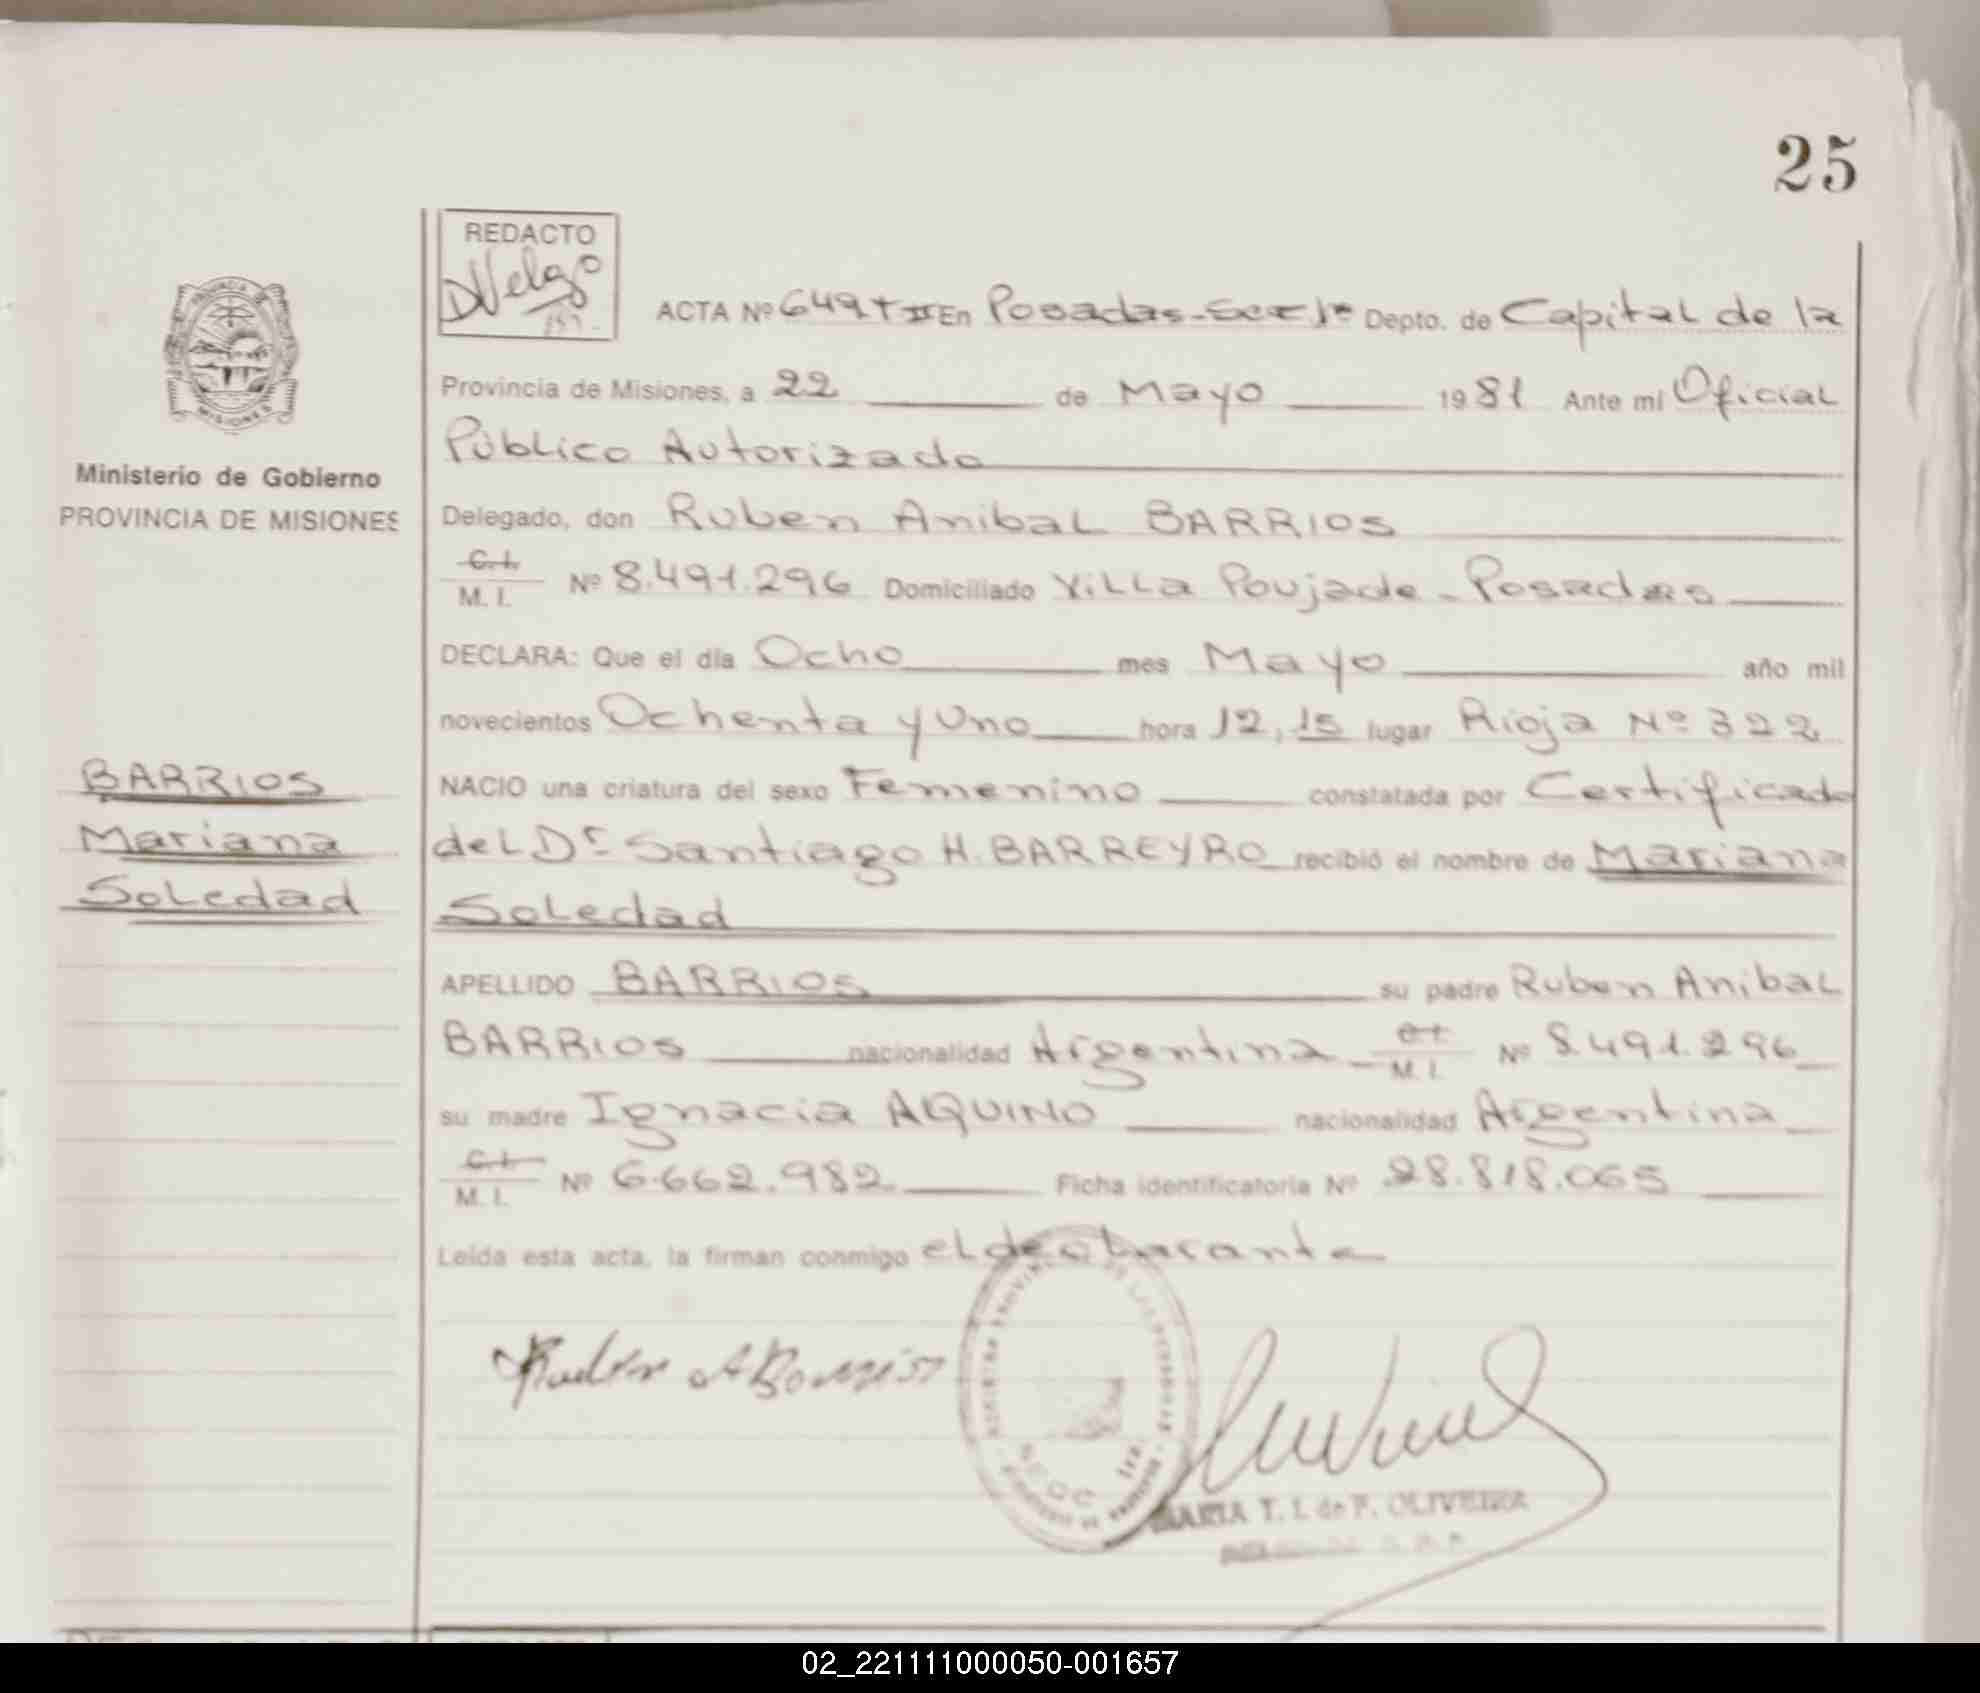 25
REDACTO
ACTA Nº 649 T II En Posadas - Secc 1ª Depto. de Capital de la
Provincia de Misiones, a 22 de Mayo 1981 Ante mi Oficial
Público Autorizado
Ministerio de Gobierno
PROVINCIA DE MISIONES
Delegado, don Ruben Anibal BARRIOS
C.I.
M. I. Nº 8.491.296 Domiciliado Villa Poujade - Posadas
DECLARA: Que el día Ocho mes Mayo año mil
novecientos Ochenta y Uno hora 12,15 lugar Rioja Nº 322
BARRIOS
Mariana
Soledad
NACIO una criatura del sexo Femenino constatada por Certificado
del Dr Santiago H. BARREYRO recibió el nombre de Mariana
Soledad
APELLIDO BARRIOS su padre Ruben Anibal
BARRIOS nacionalidad Argentina C.I.
M. I. Nº 8.491.296
su madre Ignacia AQUINO nacionalidad Argentina
C.I.
M. I. Nº 6.662.982 Ficha identificatoria Nº 28.818.065
Leída esta acta, la firman conmigo el declarante
Ruben A Barrios
MARIA T. I. de F. OLIVEIRA
02_221111000050-001657